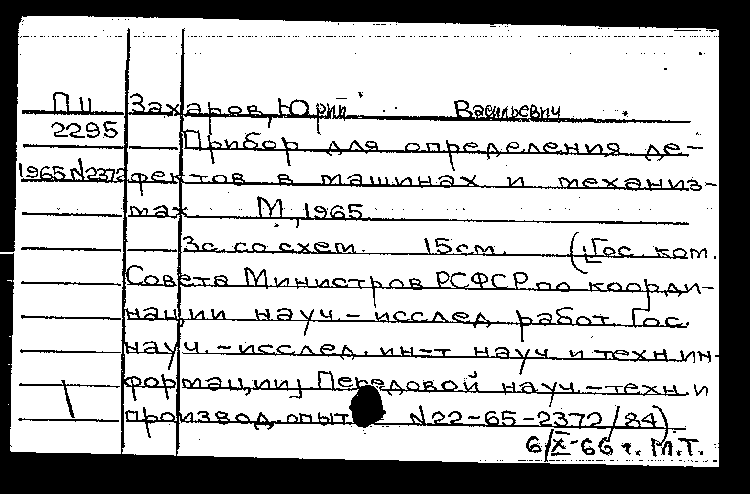 П 11 Захаров, Юрий Васильевич
2295 Прибор для определения де-
1965 N2372 фектов в машинах и механиз-
мах. М., 1965
3с. со схем. 15см. (Гос. ком.
Совета Министров РСФСР по коорди-
нации науч.-исслед работ. Гос.
науч.-исслед. ин-т науч. и техн. ин-
формации) Передовой науч.-техн. и
производ. опыт N22-65-2372/84)
6/X-66 г. М.Т.